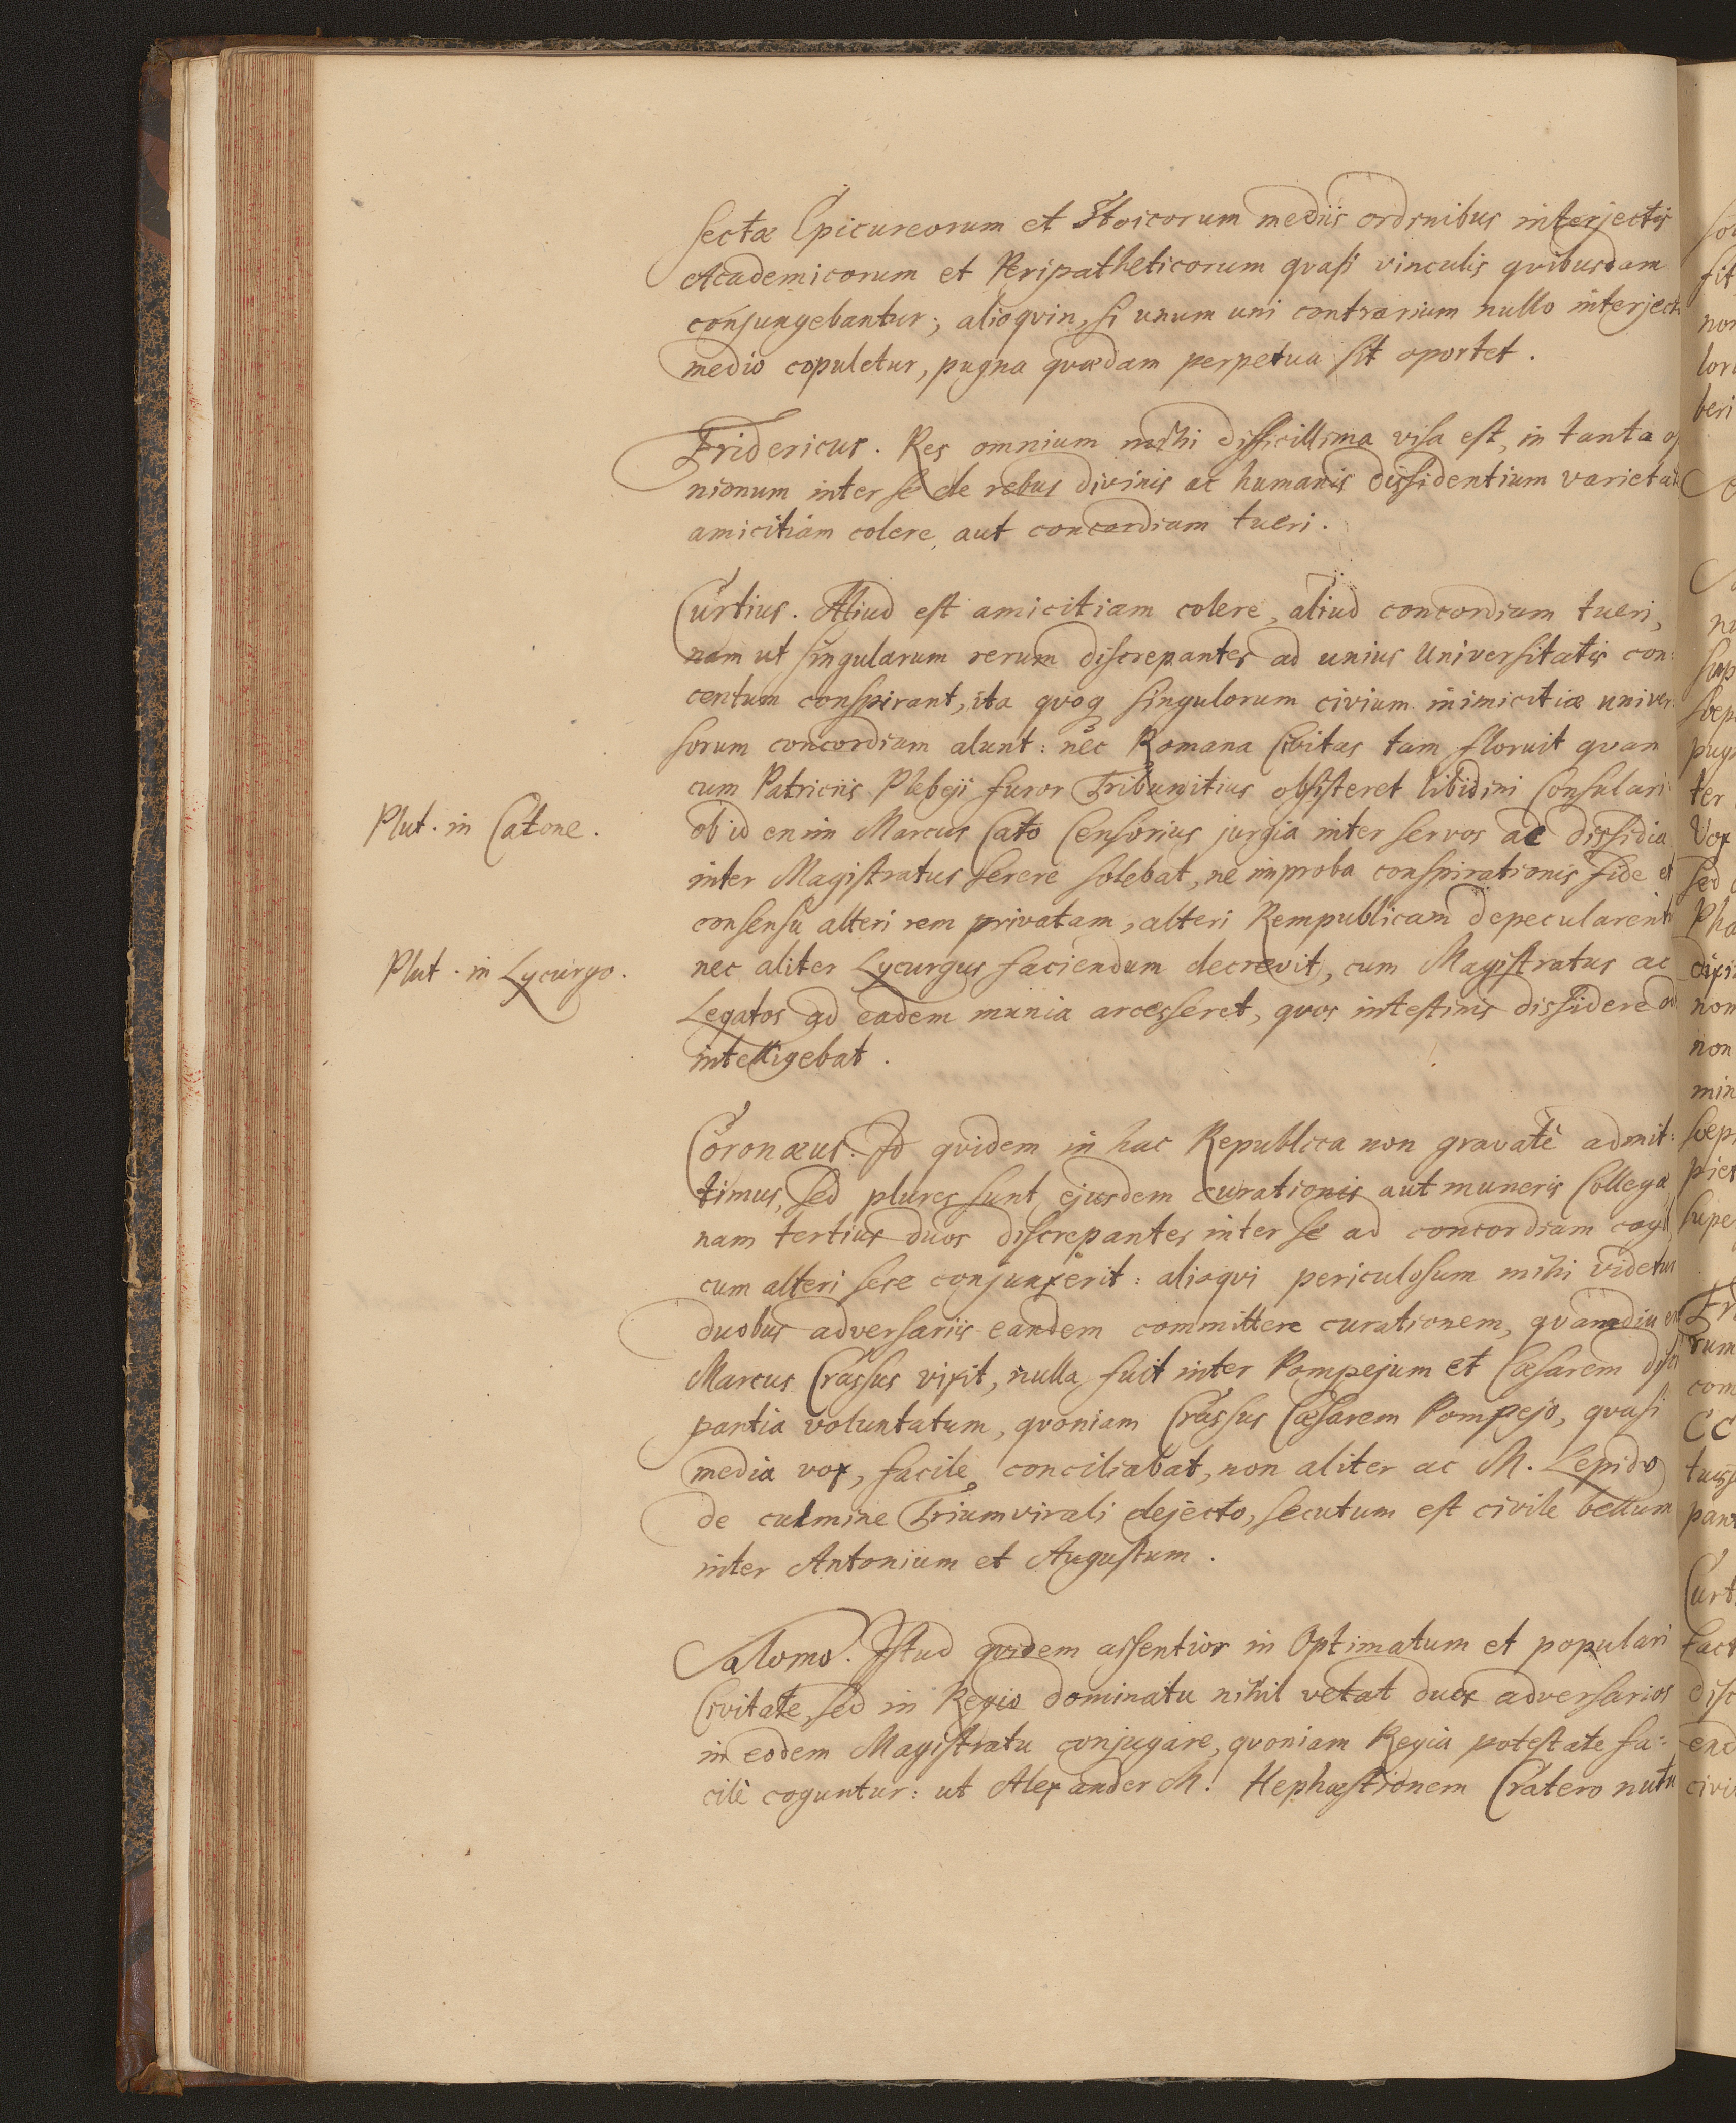 sectæ Epicureorum et Stoicorum mediis ordinibus interjectis
Academicorum et Peripatheticorum qvasi vinculis qvibusdam
conjungebantur; alioqvin, si unum uni contrarium nullo interject
medio copuletur, pugna qvædam perpetua sit oportet.
Fridericus. Res omnium mihi difficillima visa est, in tanta
nionum inter se de rebus divinis ac humanis dissidentium varietat
amicitiam colere, aut concordiam tueri.
Curtius. Aliud est amicitiam colere, aliud concordiam tueri,
nam ut singularum rerum discrepantes ad unius Universitatis con:
centum conspirant, ita qvoq singulorum civium inimicitiæ univer
sorum concordiam alunt: nec Romana Civitas tam floruit quam
cum Patriciis Plebeji furor Tribunitius obsisteret libidini Consulari
Plut. in Catone.
ob id enim Marcus Cato Censorius jurgia inter servos ac dissidia
inter Magistratus serere solebat, ne improba conspirationis fide et
consensu alteri rem privatam, alteri Rempublicam depecularent
Plut. in Lycurgo.
nec aliter Lycurgus faciendum decrevit, cum Magistratus ac
Legatos ad eadem munia arcesseret, qvos intestinis dissidere
intelligebat.
Coronæus. Id qvidem in hac Republica non gravatè admit:
timus, sed plures sunt ejusdem curationis aut muneris Collegæ,
nam tertius duos discrepantes inter se ad concordiam cogit
cum alteri sese conjunxerit: alioqvi periculosum mihi videtur
duobus adversariis eandem committere curationem, qvamdiu en
Marcus Crassus vixit, nulla fuit inter Pompejum et Cæsarem disc
pantia voluntatum, qvoniam Crassus Cæsarem Pompejo, qvasi
media vox, facile conciliabat, non aliter ac M. Lepido
de culmine Triumvirali dejecto, secutum est civile bellum
inter Antonium et Augustum.
Salomo. Istud qvidem assentior in Optimatum et populari
Civitate, sed in Regio dominatu nihil vetat duos adversarios
in eodem Magistratu conjugare, qvoniam Regia potestate fa:
cilè coguntur: ut Alexander M. Hephæstionem Cratero nutu